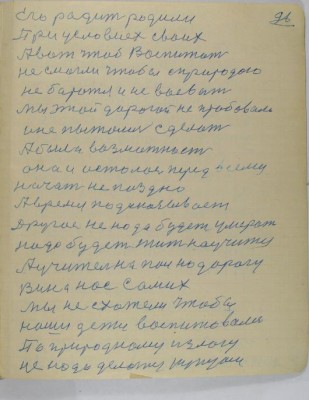 96
Его радит родили
При условиех своих
А вот чтоб воспитат
не смогли чтобы с природою
не боротся и не воеват
мы этой дорогой не пробовали
и не пытались сделат
А была возможност
она и осталос перед всеми
начат не поздно
А время подсказывает
Другое не нода будет умерат
нодо будет жит научит
А учител на пои подорогу
Вина нос Самих
мы не схотели чтобы
наши дети воспитовали
По природному
не нодо делот